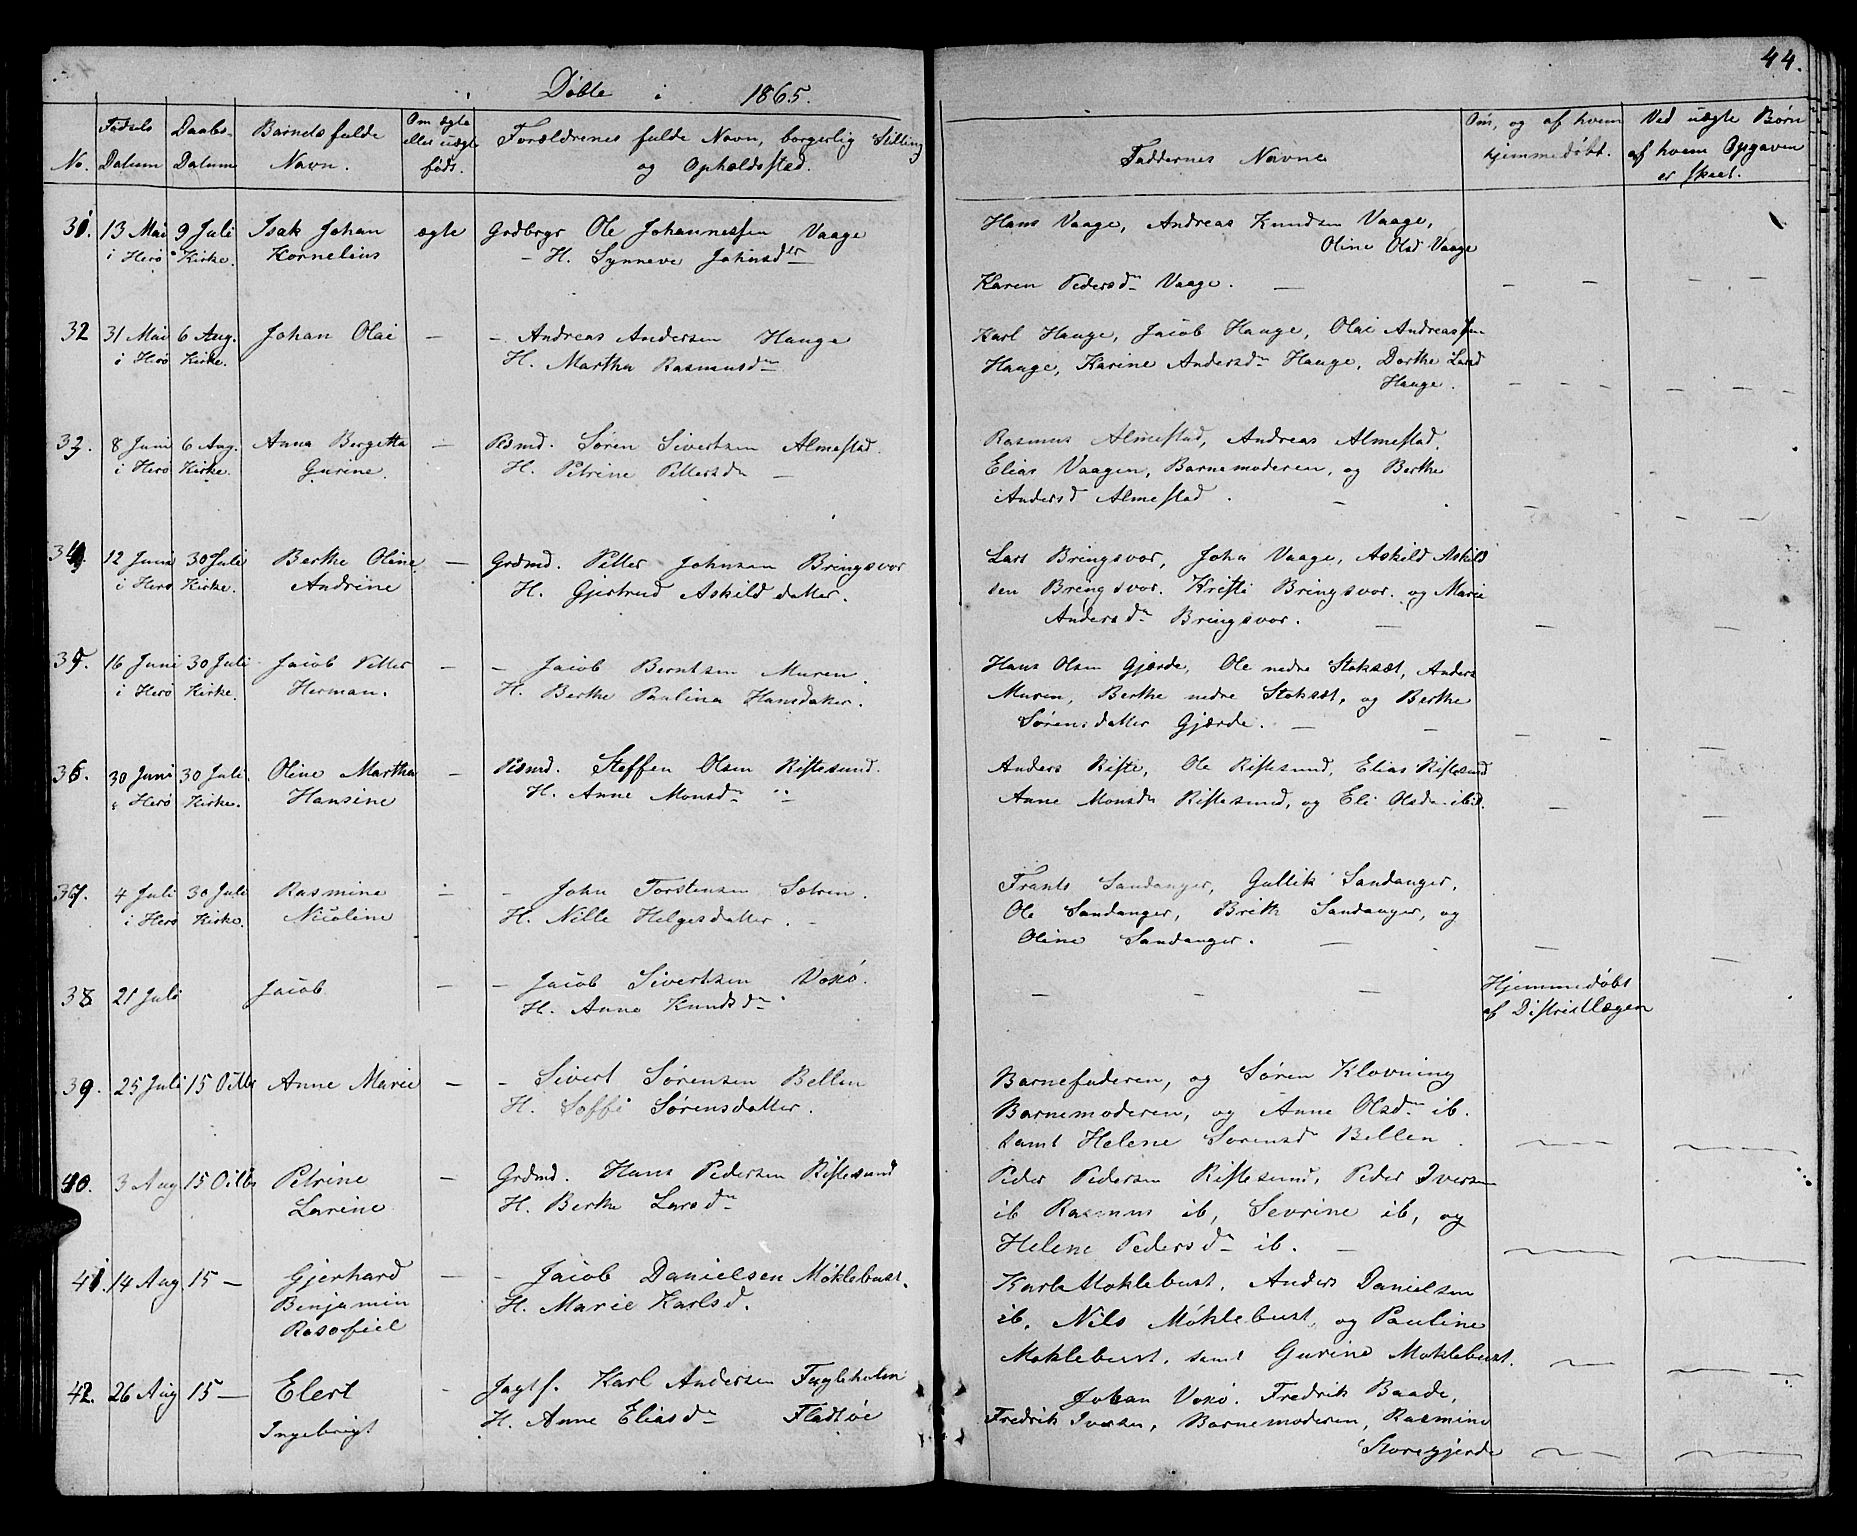 44.
Døbte i 1865.
No.
Fødsels Datum
Daabs- Datum
Barnets fulde Navn.
Om ægte eller uægte født.
Forældrenes fulde Navn, borgerlig Stilling og Opholdssted.
Faddernes Navne
Om, og af hvem hjemmedøbt.
Ved uægte Børn af hvem Opgaven er skeet.
31. 13 Mai 9 Juli Isak Johan ægte Grdbrgr Ole Johannessen Vaage Hans Vaage, Andreas Knudsen Vaage,
i Herø Kirke. Kornelius H. Synneve Johnsdtr Oline Olsd Vaage
Karen Pedersdr Vaage. — — — —
32 31 Mai 6 Aug. Johan Olai — - Andreas Andersen Hauge Karl Hauge, Jacob Hauge, Olai Andreassen
i Herø Kirke. H. Martha Rasmusdr Hauge, Karine Andersdr Hauge, Dorthe Larsd
Hauge. — — — —
33. 8 Juni 6 Aug. Anna Bergetta — Bmd. Søren Sivertsen Almestad. Rasmus Almestad, Andreas Almestad.
i Herø Kirke. Gurine. H. Petrine Pettersdr — Elias Vaagen, Barnemoderen, og Berthe
Andersd Almestad. — — — — —
34. 12 Juni 30 Juli Berthe Oline — Grdmd. Petter Johnsen Bringsvor Lars Bringsvor, John Vaage, Askild Askild
i Herø Kirke. Andrine H. Gjertrud Askilddatter. sen Bringsvor. Kristi Bringsvor. og Marie
Andersdr Bringsvor. — — — — —
35. 16 Juni 30 Juli Jacob Petter — - Jacob Berntsen Muren. Hans Olsen Gjærde, Ole nedre Stoksæt, Anders
i Herø Kirke. Herman. H. Berthe Paulina Hansdatter. Muren, Berthe nedre Stoksæt, og Berthe
Sørensdatter Gjærde. — — — — —
36. 30 Juni 30 Juli. Oline Martha — Bmd. Steffen Olsen Riftesund. Anders Rifte, Ole Riftesund, Elias Riftesund
i Herø Kirke. Hansine H. Anne Monsdr " Anne Monsdr Riftesund, og Eli Olsdr ibid.
— —
37. 4 Juli 30 Juli Rasmine — - John Torstensen Sætren. Frants Sandanger, Gullik Sandanger,
i Herø Kirke. Nicoline H. Nille Helgesdatter. - Ole Sandanger, Brith Sandanger, og
Oline Sandanger. — — —
38 21 Juli Jacob — - Jacob Sivertsen Voksø. — — — — Hjemmedøbt
H. Anne Knudsdr af Districtlægen
39. 25 Juli 15 Octbr Anne Marie — - Sivert Sørensen Bellen Barnefaderen, og Søren Klovning
H. Soffi Sørensdatter. Barnemoderen, og Anne Olsdr ib.
samt Helene Sørensd Bellen. — —
40. 3 Aug 15 Octbr Petrine — Grdmd. Hans Pedersen Riftesund Peder Pedersen Riftesund, Peder Iversen
Larine H. Berthe Larsdr ib Rasmus ib, Sevrine ib, og
Helene Pedersdr ib. — — —
41. 14 Aug. 15 — Gjerhard — - Jacob Danielsen Møklebust. Karl Møklebust, Anders Danielsen
Benjamin H. Marie Karlsd. ib, Nils Møklebust, og Pauline
Rasofiel Møklebust, samt Gurine Møklebust. — —
42. 26 Aug 15 — Elert - Jagtf. Karl Andersen Fugleholm Johan Voksø. Fredrik Baade,
Ingebrigt H. Anne Eliasdr Fladsøe Fredrik Iversen, Barnemoderen, Rasmine
Storegjerde — —